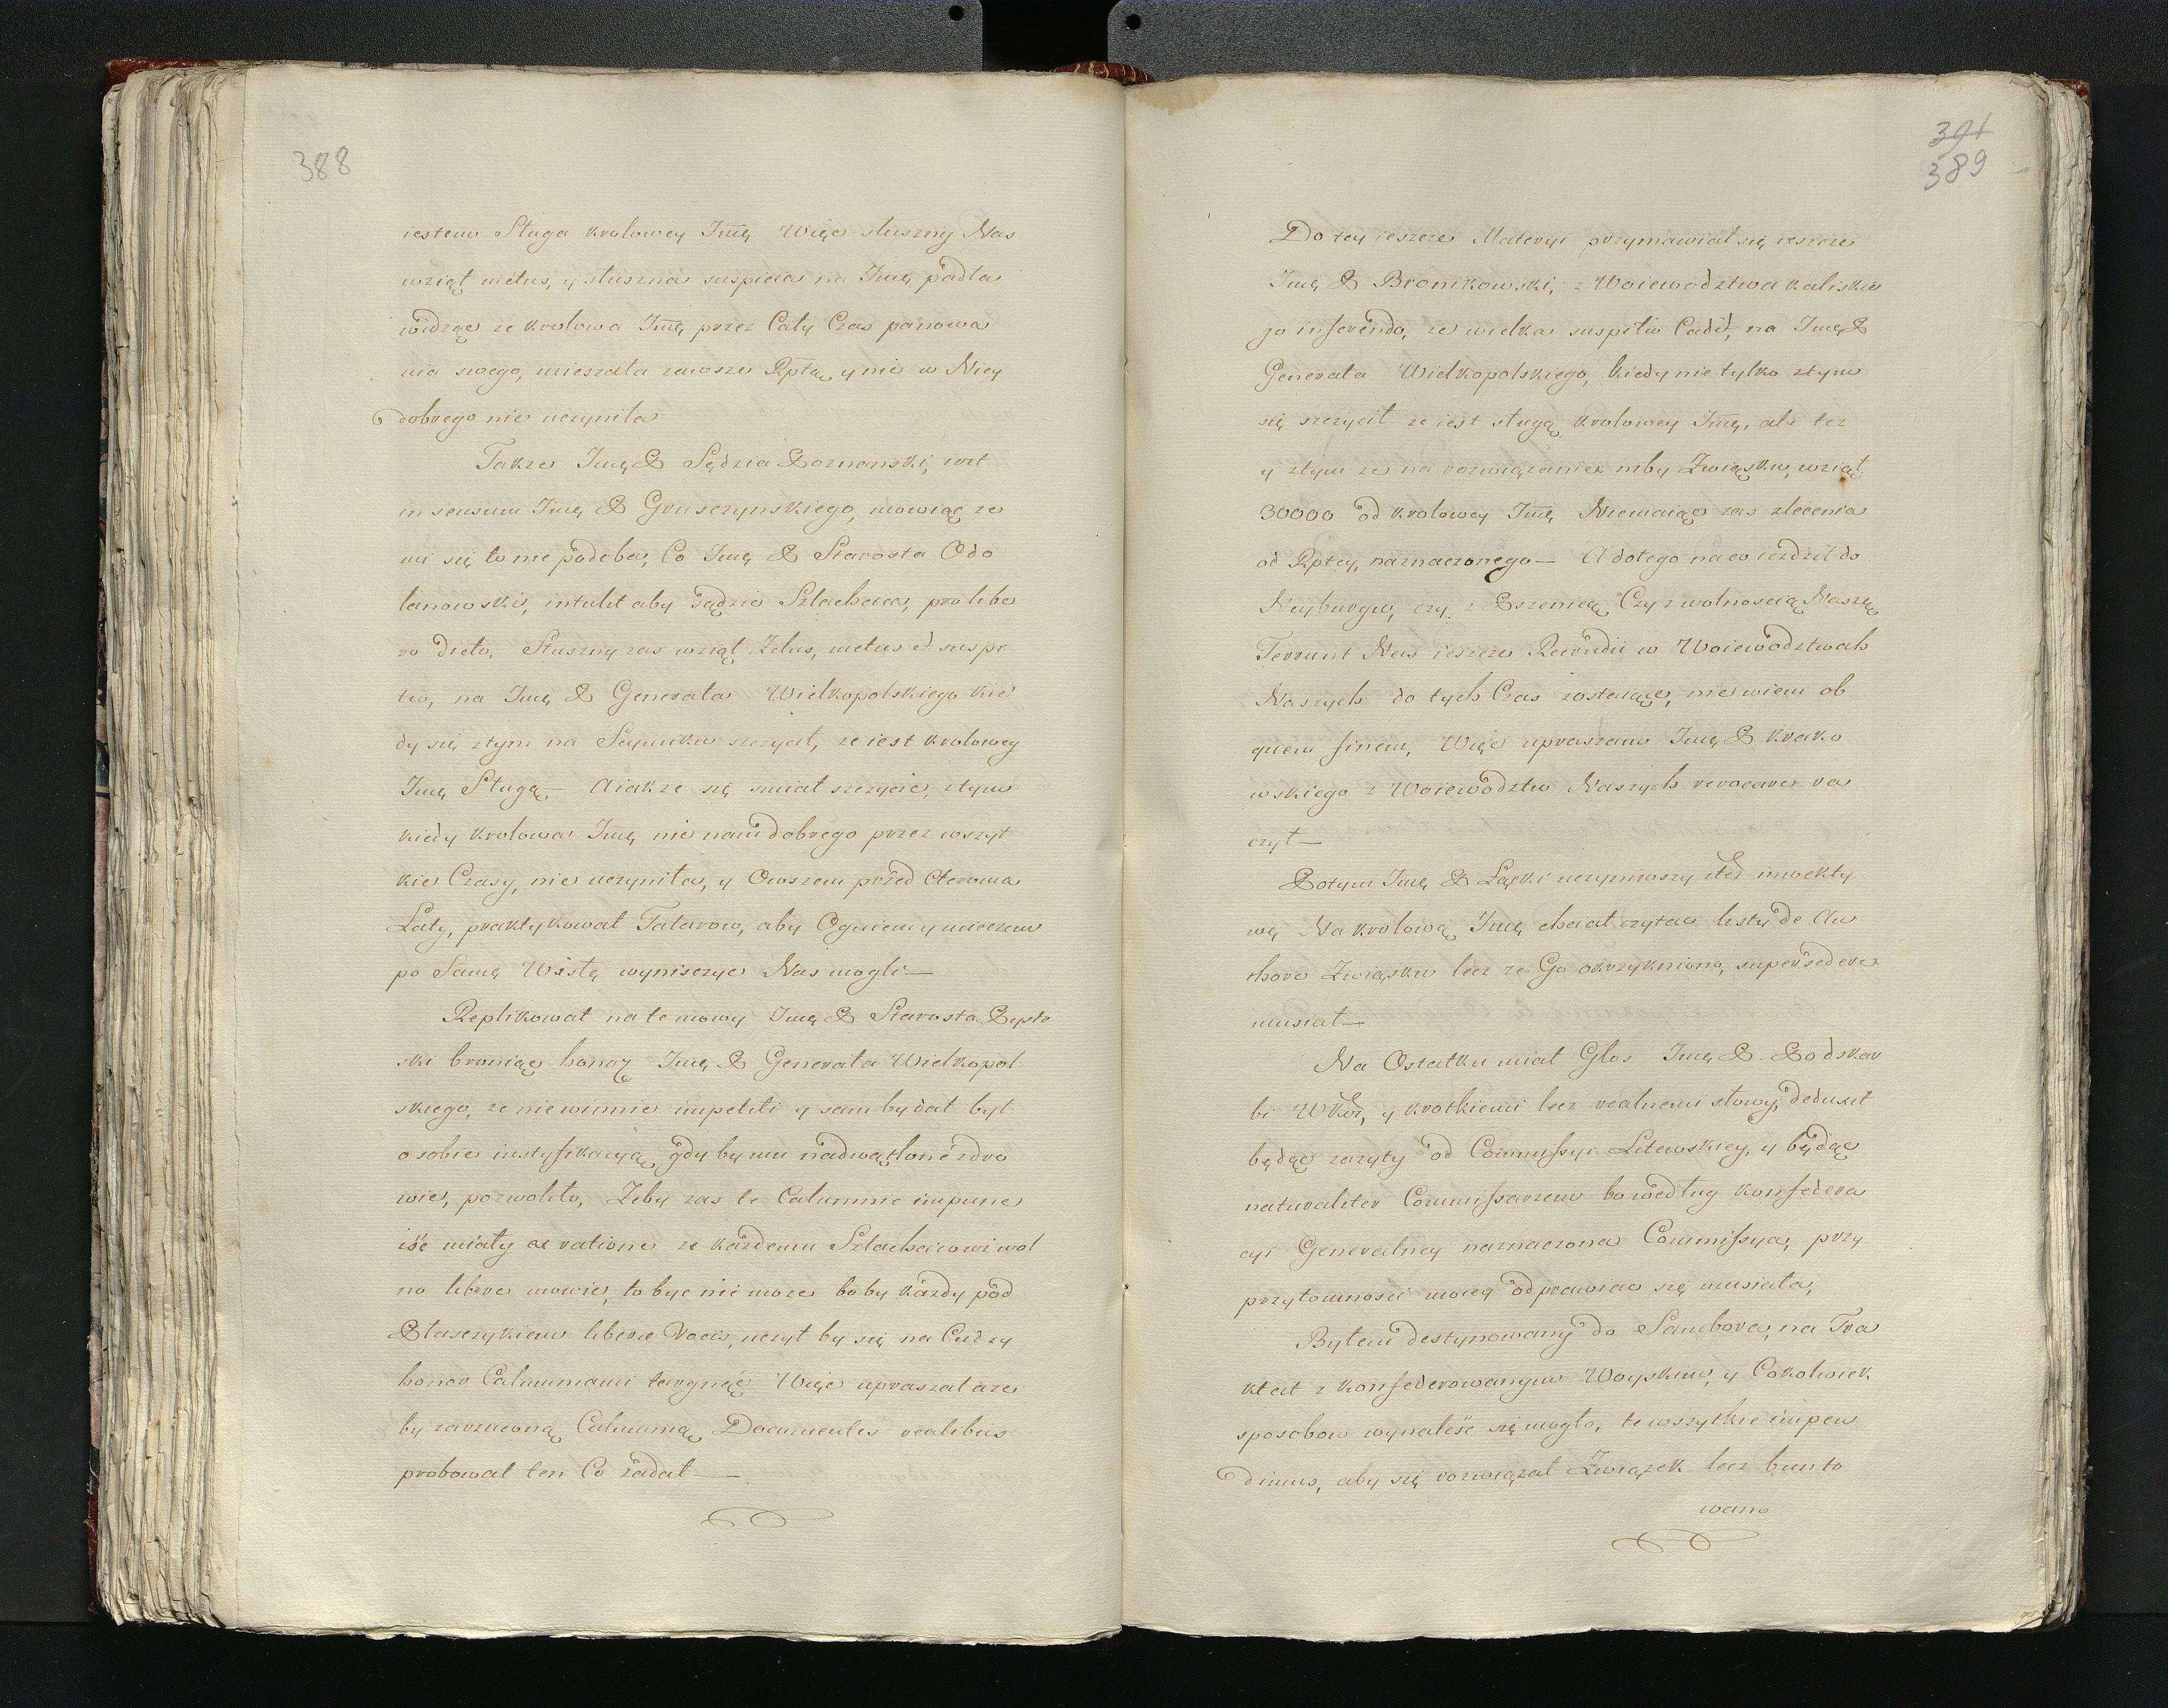 388
iestem Sługa krolowey Jmę Więc słuszny Nas
wziął metus, y słuszna suspicia na Jmę padła
widząc ze krolowa Jmę przez Cały Czas panowa
nia swego, mieszała zawsze Rptą y nic w Niey
dobrego nie uczyniła
Takze Jmę P Sędzia Poznanski, ivit
in sensum Jmę P Gruszczynskiego, mowiąc ze
mi się to nie podoba, Co Jmę P Starosta Odo
lanowski, intulit aby sądzic Szlachcica, pro libe
ro dicto, Słuszny zas wziął Zelus, metus et suspi
tio, na Jmę P Generała Wielkopolskiego kie
dy się ztym na Seymiku szczycił, ze iest krolowey
Jmę Sługą – A iakze się smiał szczycic, ztym
kiedy krolowa Jmę nic nam dobrego przez wszyt
kie Czasy, nie uczyniła, y Owszem przed Cteroma
Laty, praktykował Tatarow, aby Ogniem y mieczem
po Samę Wisłę wyniszczyc Nas mogli –
Replikował na te mowy Jmę P Starosta Pyzdr
ski broniąc honor Jmę P Generała Wielkopol
skiego, ze niewinnie impetiti y sam by dał był
o sobie iustyfikacyą, gdy by mu nadwątlone zdro
wie, pozwoliło, Zeby zas te Calumnie impune
iść miały ex ratione ze kazdemu Szlachcicowi wol
no libere mowic, to byc nie moze bo by kazdy pod
Płaszczykiem liberæ Vocis, uczył by się na Cudzy
honor Calumniami targnąć Więc upraszał aze
by zarzuconą Calumnią Documentis realibus
probował ten Co zadał –
391
389
Do tey ieszcze Materyi przymawiał się ieszcze
Jmę P Bronikowski, z Woiewodztwa kaliskie
go inferendo, ze wielka suspitio Cadit, na Jmę P
Generała Wielkopolskiego, kiedy nie tylko ztym
się szczycił ze iest sługą krolowey Jmę, ale tez
y ztym ze na rozwiązanie niby Związku, wziął
30000 od krolowey Jmę Niemaiąc zas zlecenia
od Rptey, naznaczonego – A dotego na co iezdził do
Neyburgu, czy z Pszenicą Czy z wolnoscią Naszą
Terrunt Nas ieszcze Præsidii w Woiewodztwah
Naszych do tych Czas zostaiące, nie wiem ob
quem finem, Więc upraszam Jmę P krako
wskiego z Woiewodztw Naszych revocare ra
czył –
Potym Jmę P Łącki uczyniwszy itd inwekty
wę Na krolową Jmę chciał czytac listy de Au
thore Związku lecz ze Go okrzykniono, supersedere
musiał –
Na Ostatku miał Głos Jmę P. Podskar
bi WKor, y krotkiemi lecz realnemi słowy, deduxit
będąc zazyty od Commissyi Litewskiey, y będąc
naturaliter Commissarzem bo według konfedera
cyi Generalney naznaczona Commissya, przy
przytomnosci moiey odprawiac się musiała,
Byłem destynowany do Sambora, na Tra
ktat z konfederowanym Woyskiem, y Cokolwiek
sposobow wynaleść się mogło, te wszytkie impen
dimus, aby się rozwiązał Związek lecz bunto
wano